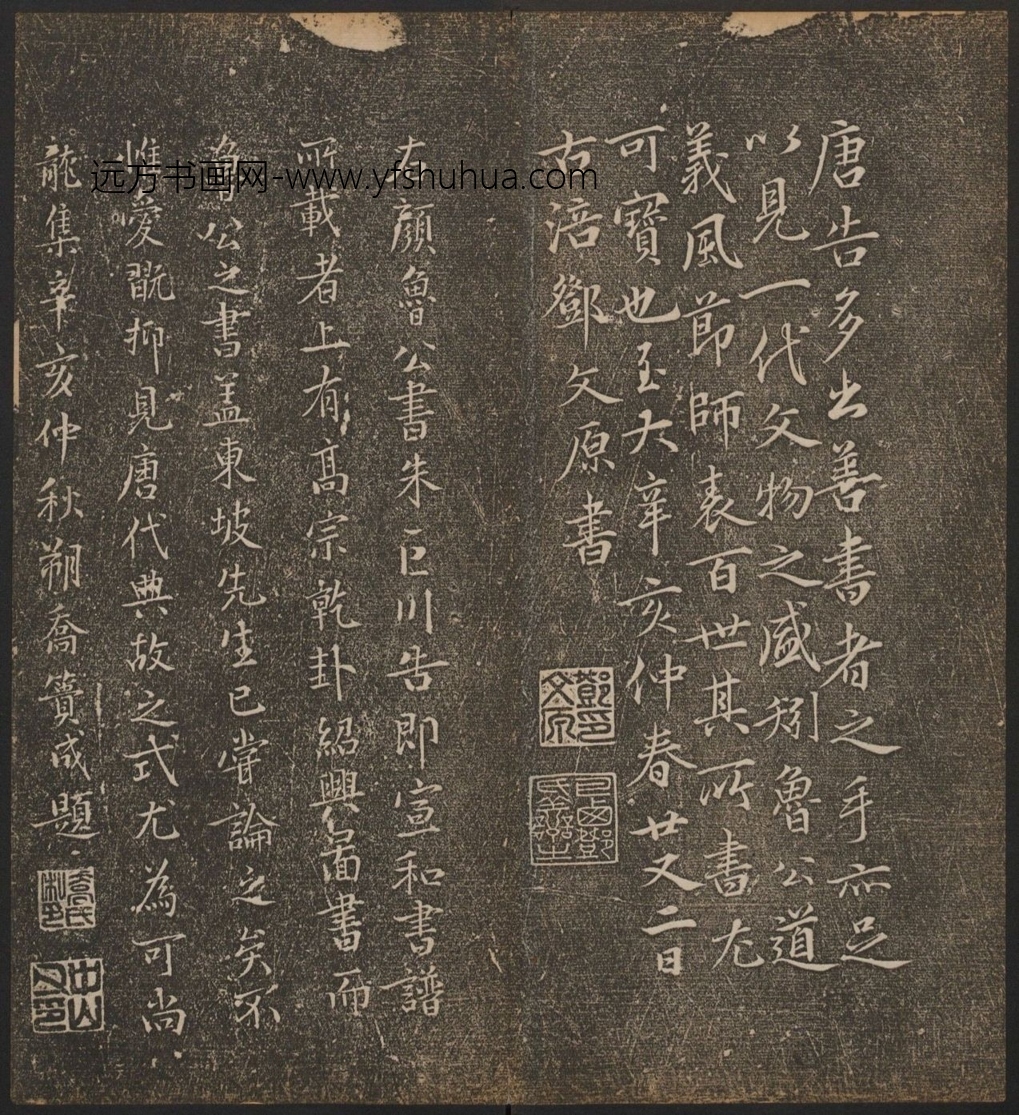 唐告多出善書者之手亦足
以見一代文物之盛矧魯公道
義風節師表百世其所書尤
可寶也至大辛亥仲春廿又二日
古涪鄧文原書
右顏魯公書朱巨川告即宣和書譜
所載者上有高宗乾卦紹興圖書而
魯公之書盖東坡先生已嘗論之矣不
惟愛翫抑見唐代典故之式尤為可尚
龍集辛亥仲秋朔喬簣成題
远方书画网-www.yfshuhua.com